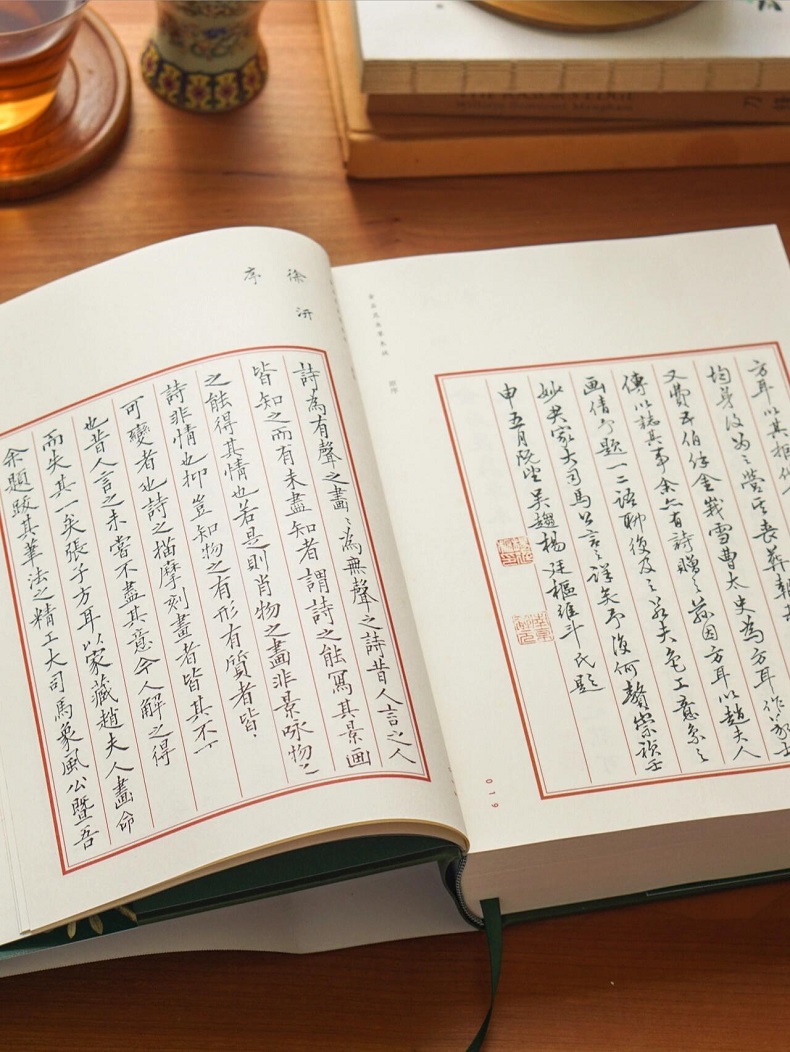 THE RAZOR'S EDGE
William Somerset Maugham
刀
方耳以其
均弟没為之營其喪葬
又費五伯餘金峩雪曹太史為方耳作
傳以誌其事余亦有詩贈之茲因方耳以趙夫人
画倩予題一二語聊復及之若夫色工意象之
妙尹家大司馬公言之詳矣予復何贅崇禎壬
申五月既望吳趨楊廷樞維斗氏題
金石昆虫草木状
019
徐汧
序
詩為有聲之畫〻為無聲之詩昔人言之人
皆知之而有未盡知者謂詩之能寫其景画
之能得其情也若是則肖物之畫非景咏物之
詩非情也抑豈知物之有形有質者皆
可變者也詩之描摩刻畫者皆其不
也昔人言之未嘗不盡其意令人解之得
而失其一矣張子方耳以家藏趙夫人畫命
余題跋其筆法之精工大司馬象風公暨吾